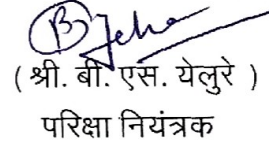 ( श्री. बी. एस. येलुरे )
परिक्षा नियंत्रक